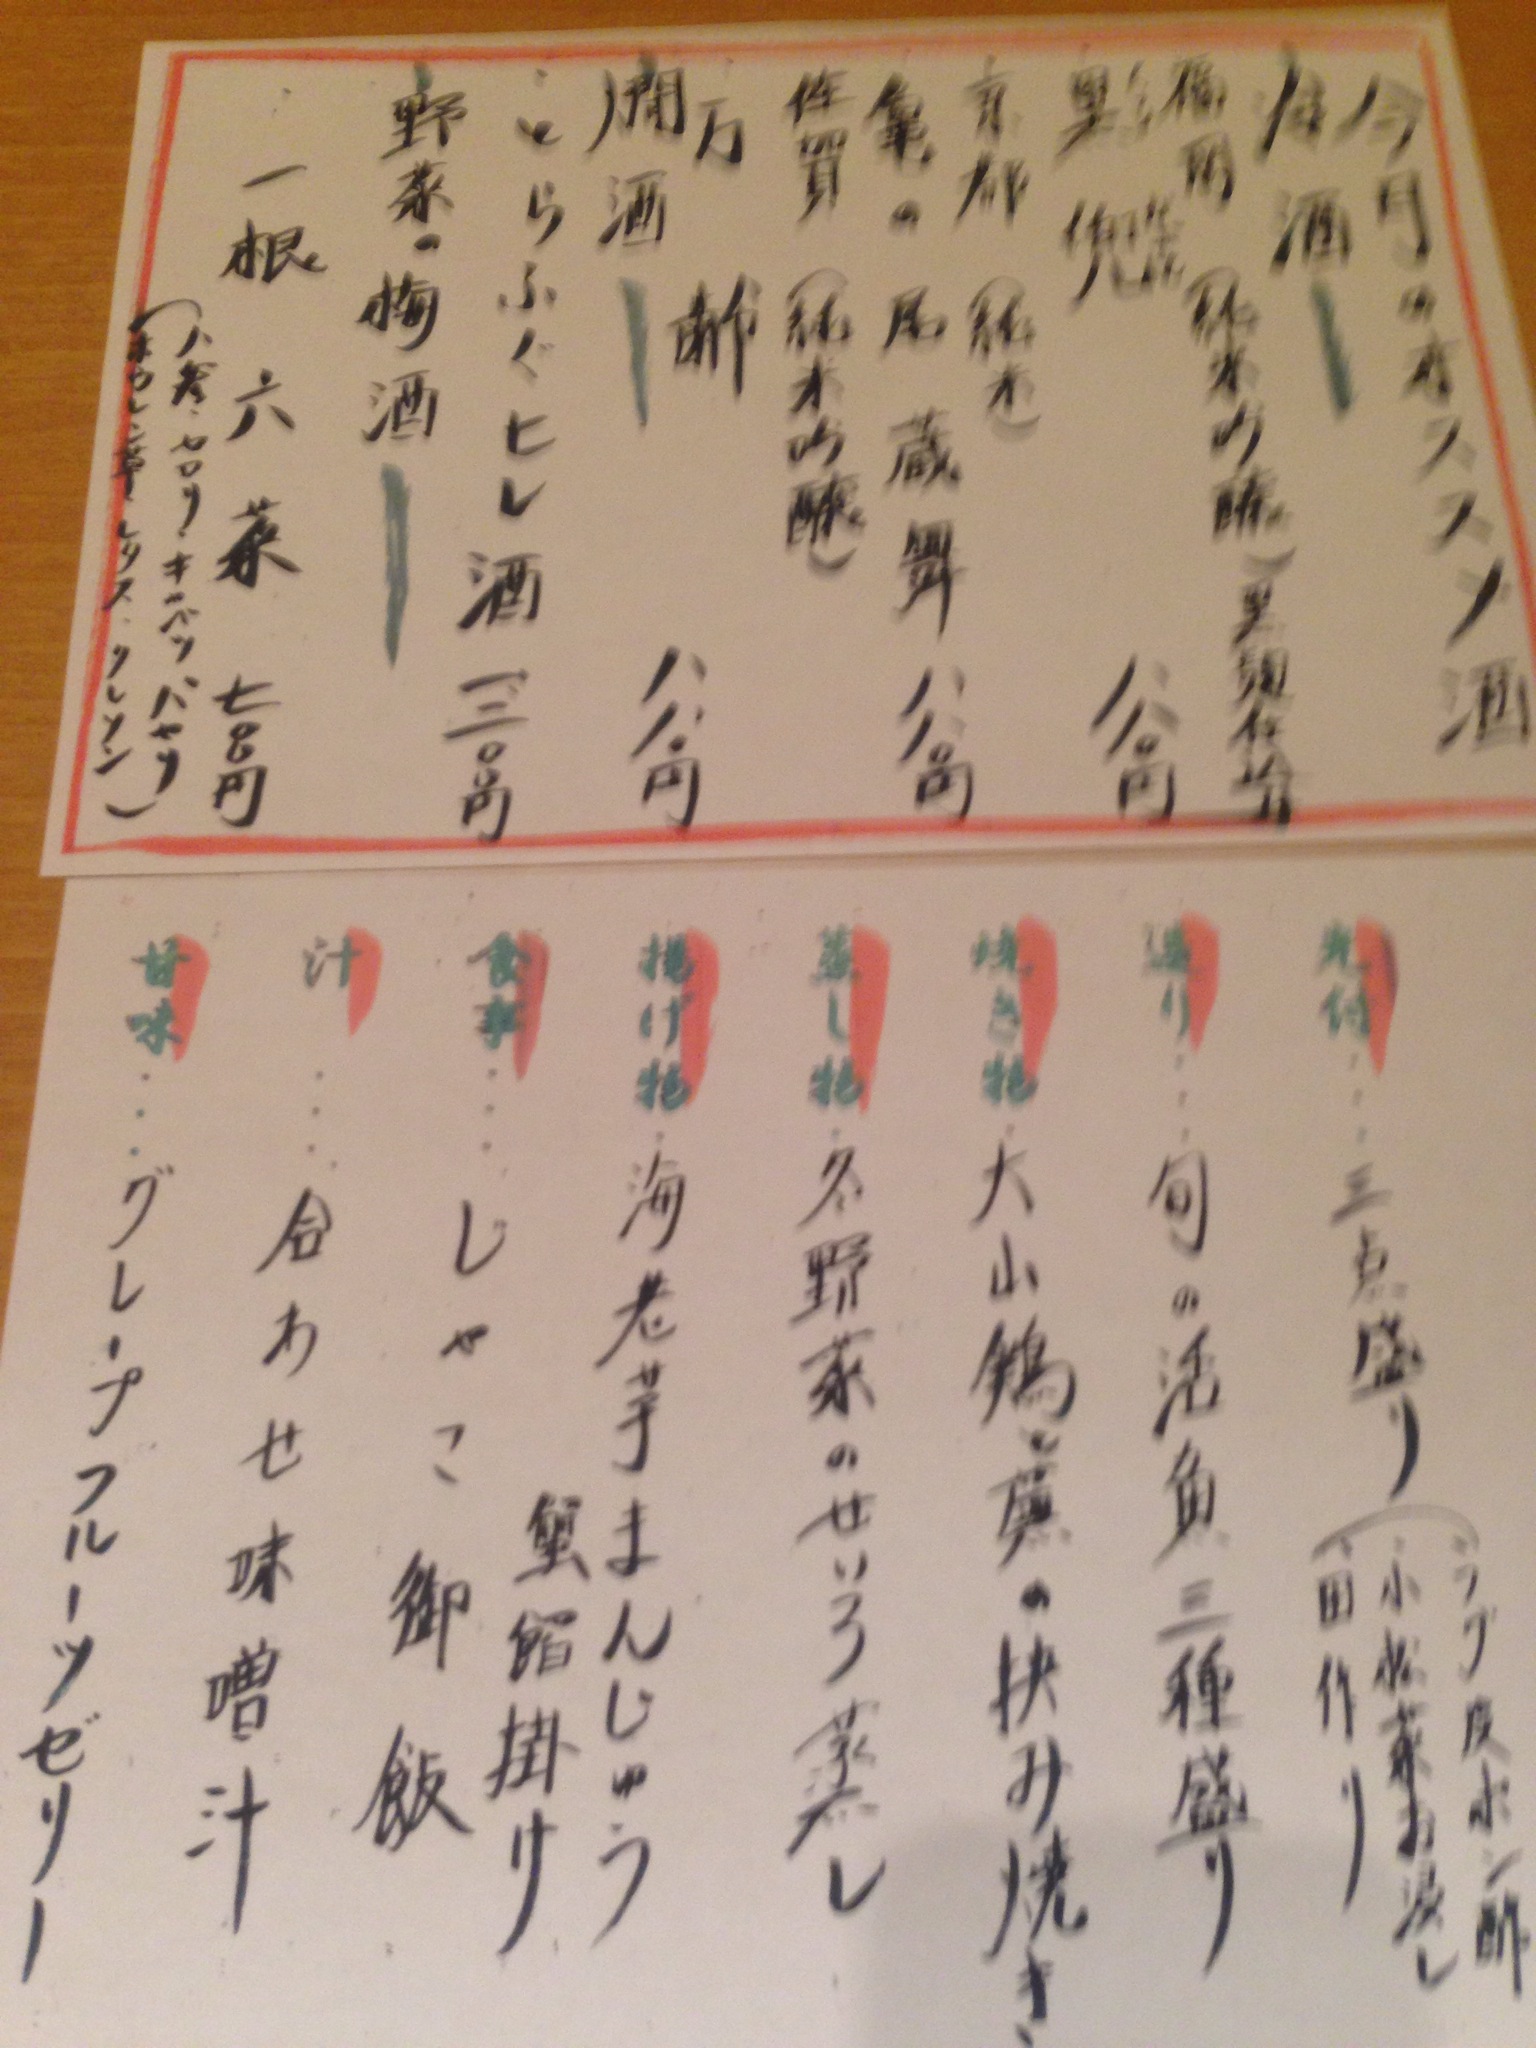 今月のオススメ酒
冷酒
福岡 (純米吟醸)黒麹仕込
黒兜 八八〇円
京都 (純米)
亀の尾蔵舞 八八〇円
佐賀 (純米吟醸)
万齢 八八〇円
燗酒
とらふぐヒレ酒 一三〇〇円
野菜の梅酒
一根六菜 七〇〇円
(人参・セロリ・キャベツ・パセリ
ホウレン草・レタス・クレソン)
先付…三点盛り
(フグ皮ポン酢
小松菜お浸し
田作り
造り…旬の活魚三種盛り
焼き物…大山鶏と蕪の挟み焼き
蒸し物…冬野菜のせいろ蒸し
揚げ物…海老芋まんじゅう
蟹餡掛け
食事…じゃこ御飯
汁…合わせ味噌汁
甘味…グレープフルーツゼリー